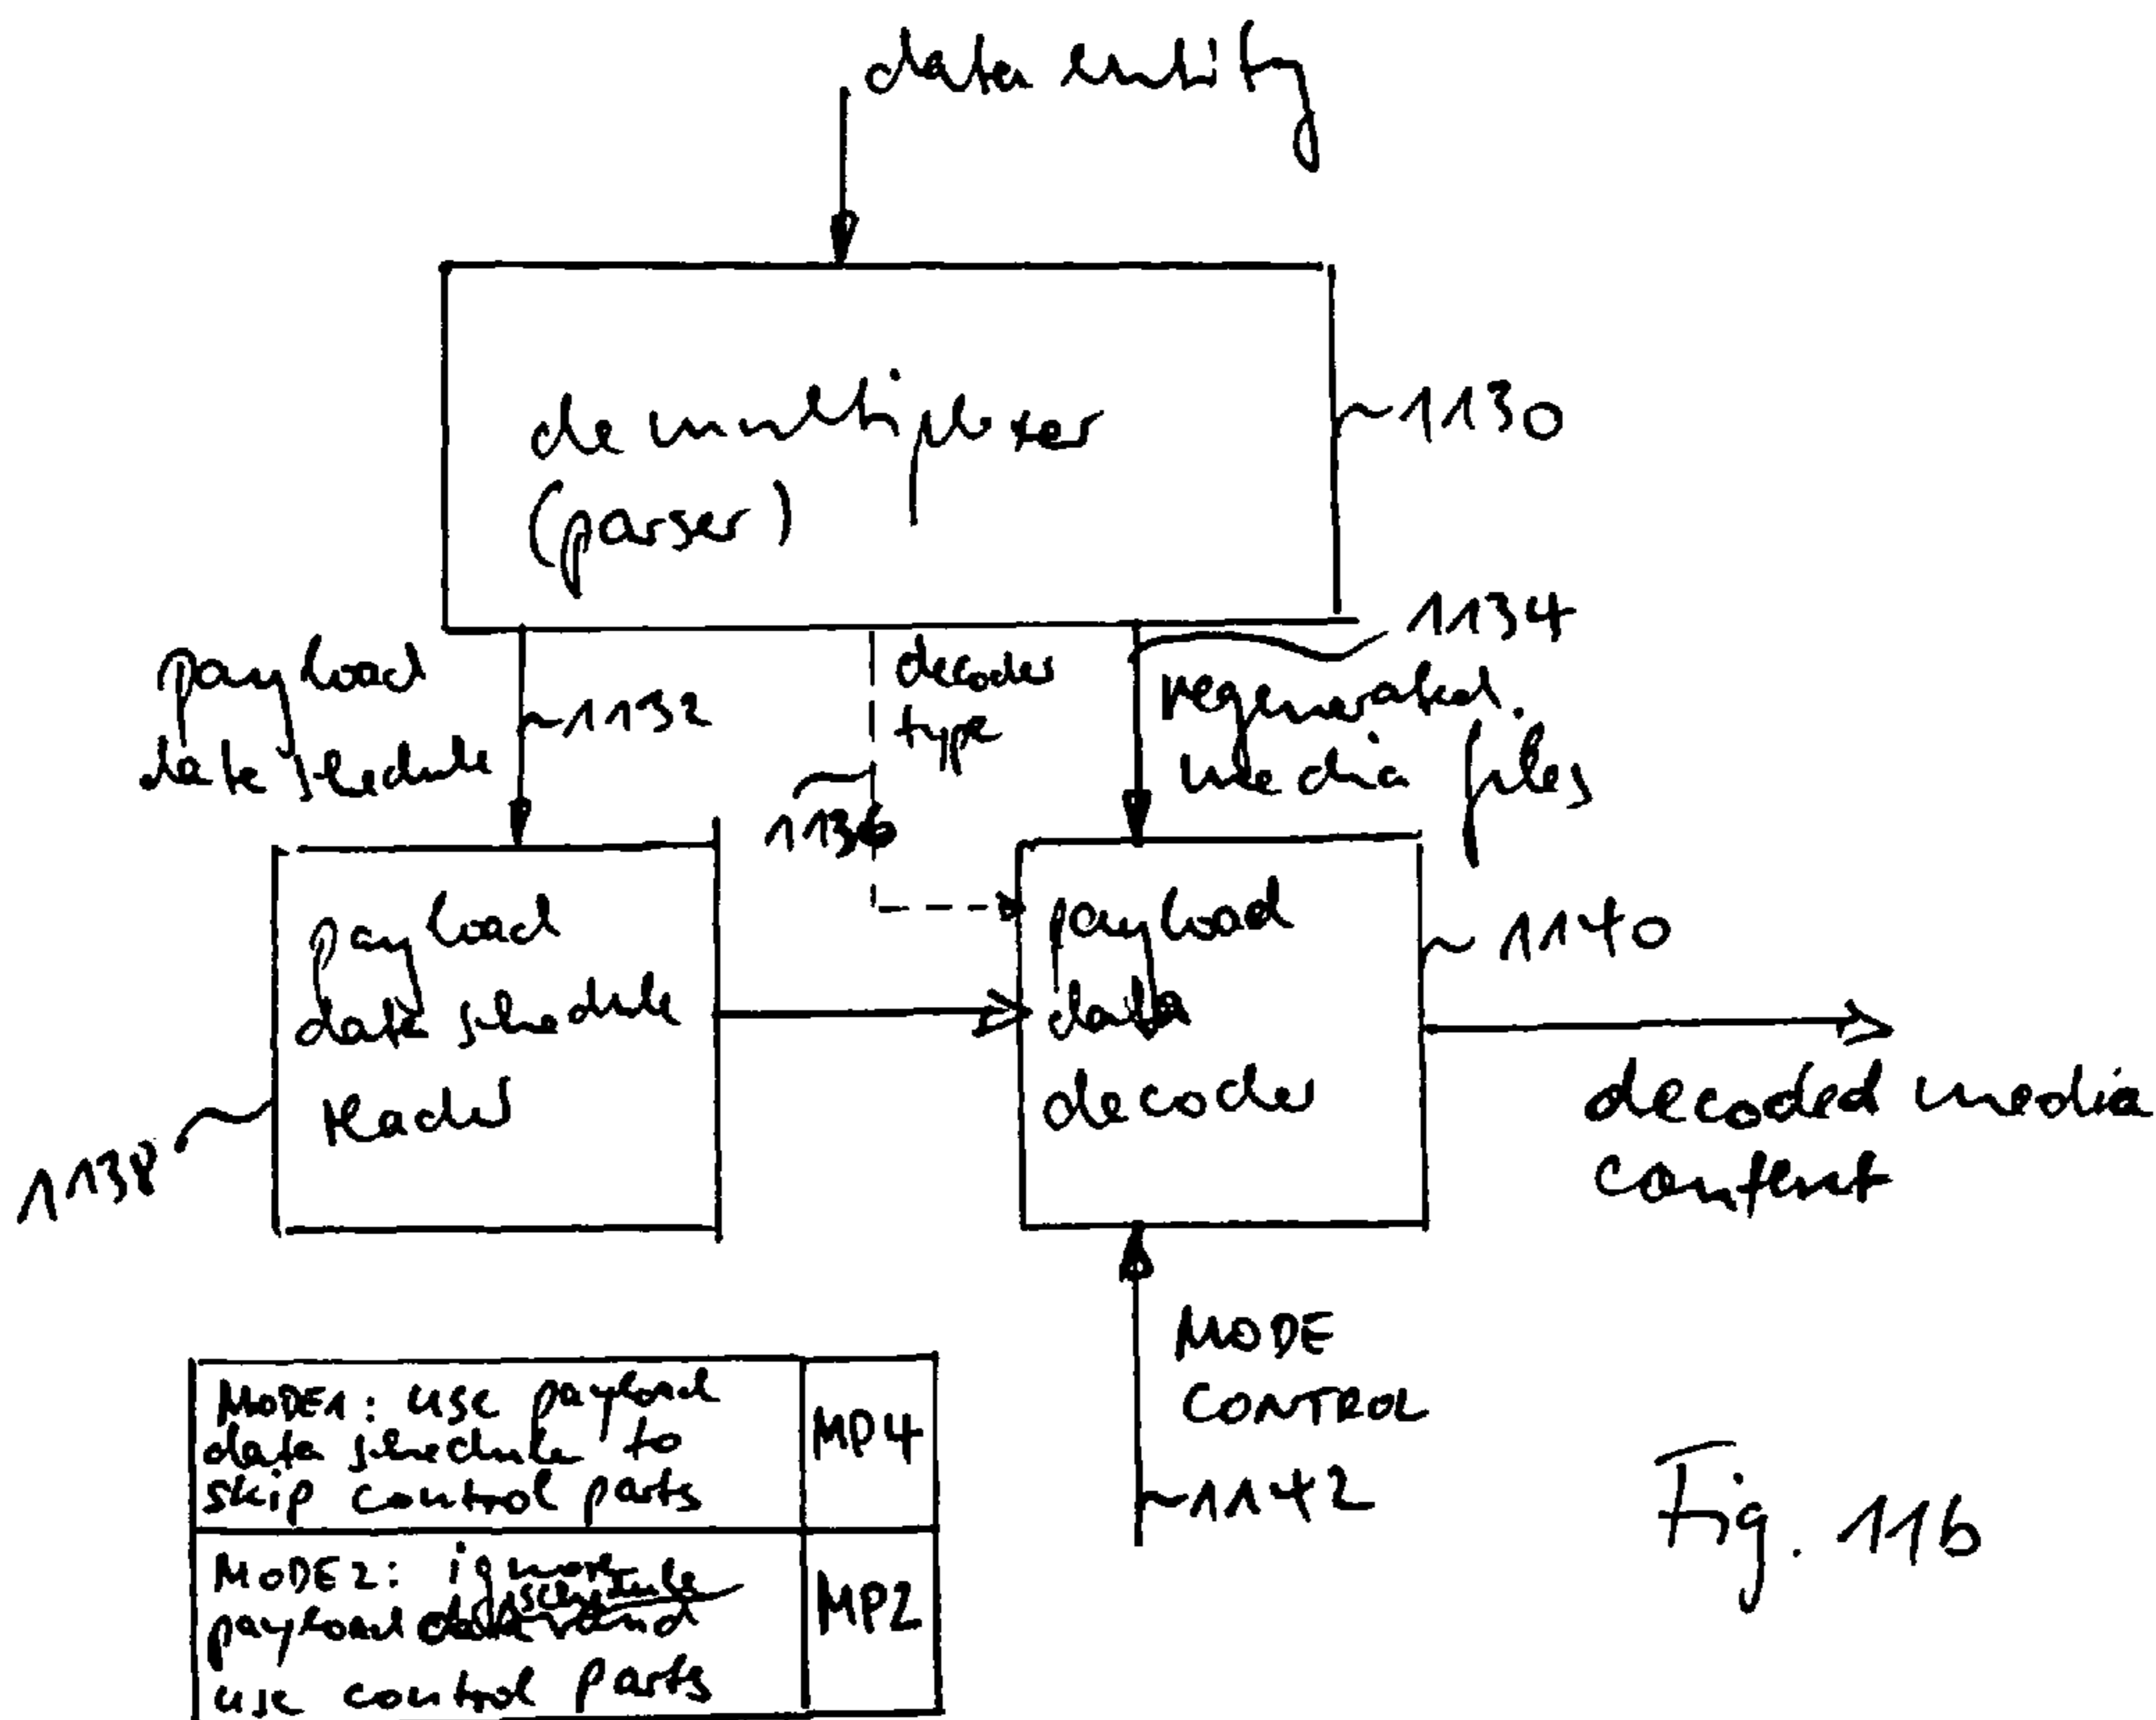 data entity
demultiplexer
(parser)
~1130
payload
data schedule
~1132
decoder
type
1136
1134
regenerated
media files
payload
data schedule
reader
1138
payload
data
decoder
~1140
decoded media
content
MODE
CONTROL
~1142
MODE1: use payload
data schedule to
skip control parts
MP4
MODE2: ignore
payload data schedule and
use control parts
MP2
Fig. 11b